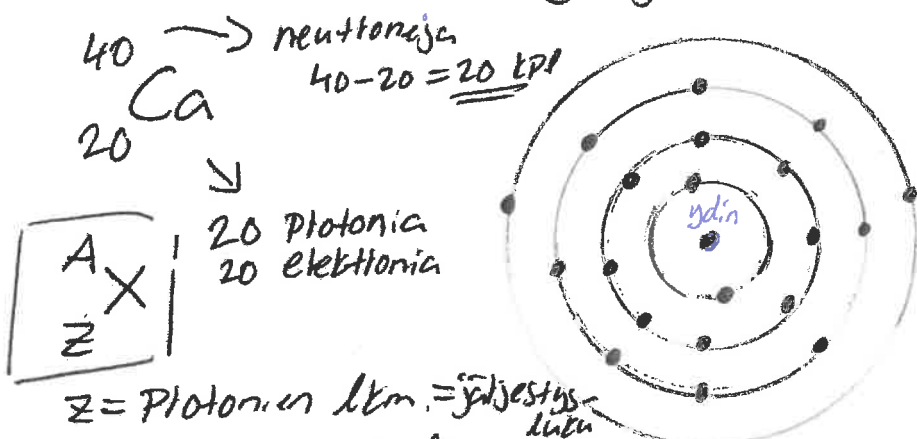 40 → neutroneja
40-20 = 20 kpl
Ca
20
↘
20 protonia
20 elektronia
A
X
Z
ydin
Z = Protonien lkm. = järjestys-
luku